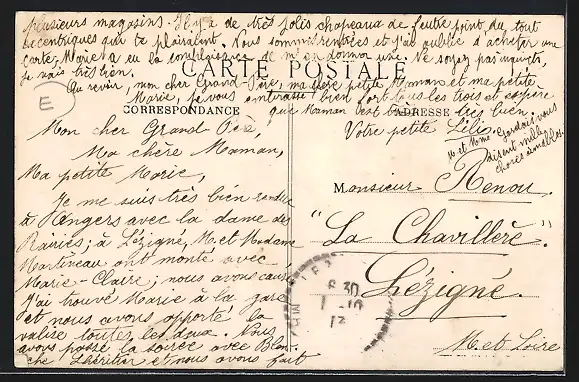 Mon cher Grand Père,
Ma chère Maman,
Ma petite Marie,
Je me suis très bien rendue
à Angers avec la dame des
Rairies ; à Lézigné, M. et Madame
Martineau ont monté avec
Marie-Claire ; nous avons causé
J'ai trouvé Marie à la gare
et nous avons apporté la
valise toutes les deux. Nous
avons passé la soirée avec Blan-
che Lhéritier et nous avons fait
plusieurs magasins. Il y a de très jolis chapeaux de feutre point du tout
excentriques qui te plairaient. Nous sommes rentrées et j'ai oublié d'acheter une
carte, Marie a eu la complaisance de m'en donner une. Ne soyez pas inquiets,
je vais très bien.
Au revoir, mon cher Grand-Père, ma chère petite Maman et ma petite
Marie, je vous embrasse bien fort tous les trois et espère
que Maman va très bien.
Votre petite
M. et Mme vous
disent mille
choses aimables.
CARTE POSTALE
CORRESPONDANCE
ADRESSE
Monsieur Renou.
"La Chavillère".
Lézigné.
M. et Loire
E
8 30
1 - 10
13